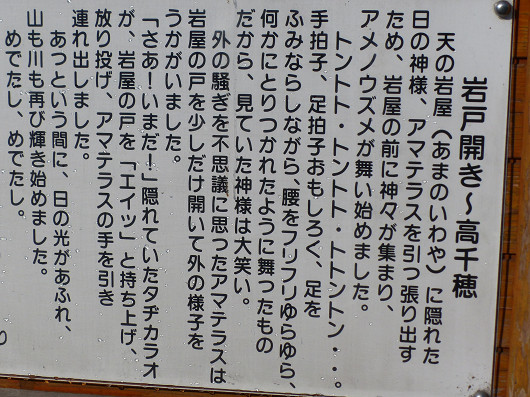 岩戸開き～高千穂
天の岩屋（あまのいわや）に隠れた
日の神様、アマテラスを引っ張り出す
ため、岩屋の前に神々が集まり、
アメノウズメが舞い始めました。
トントト・トントト・トトントン・・・。
手拍子、足拍子おもしろく、足を
ふみならしながら、腰をフリフリゆらゆら、
何かにとりつかれたように舞ったもの
だから、見ていた神様は大笑い。
外の騒ぎを不思議に思ったアマテラスは
岩屋の戸を少しだけ開いて外の様子を
うかがいました。
「さあ！いまだ！」隠れていたタヂカラオ
が、岩屋の戸を「エイッ」と持ち上げ、
放り投げ、アマテラスの手を引き
連れ出しました。
あっという間に、日の光があふれ、
山も川も再び輝き始めました。
めでたし、めでたし。